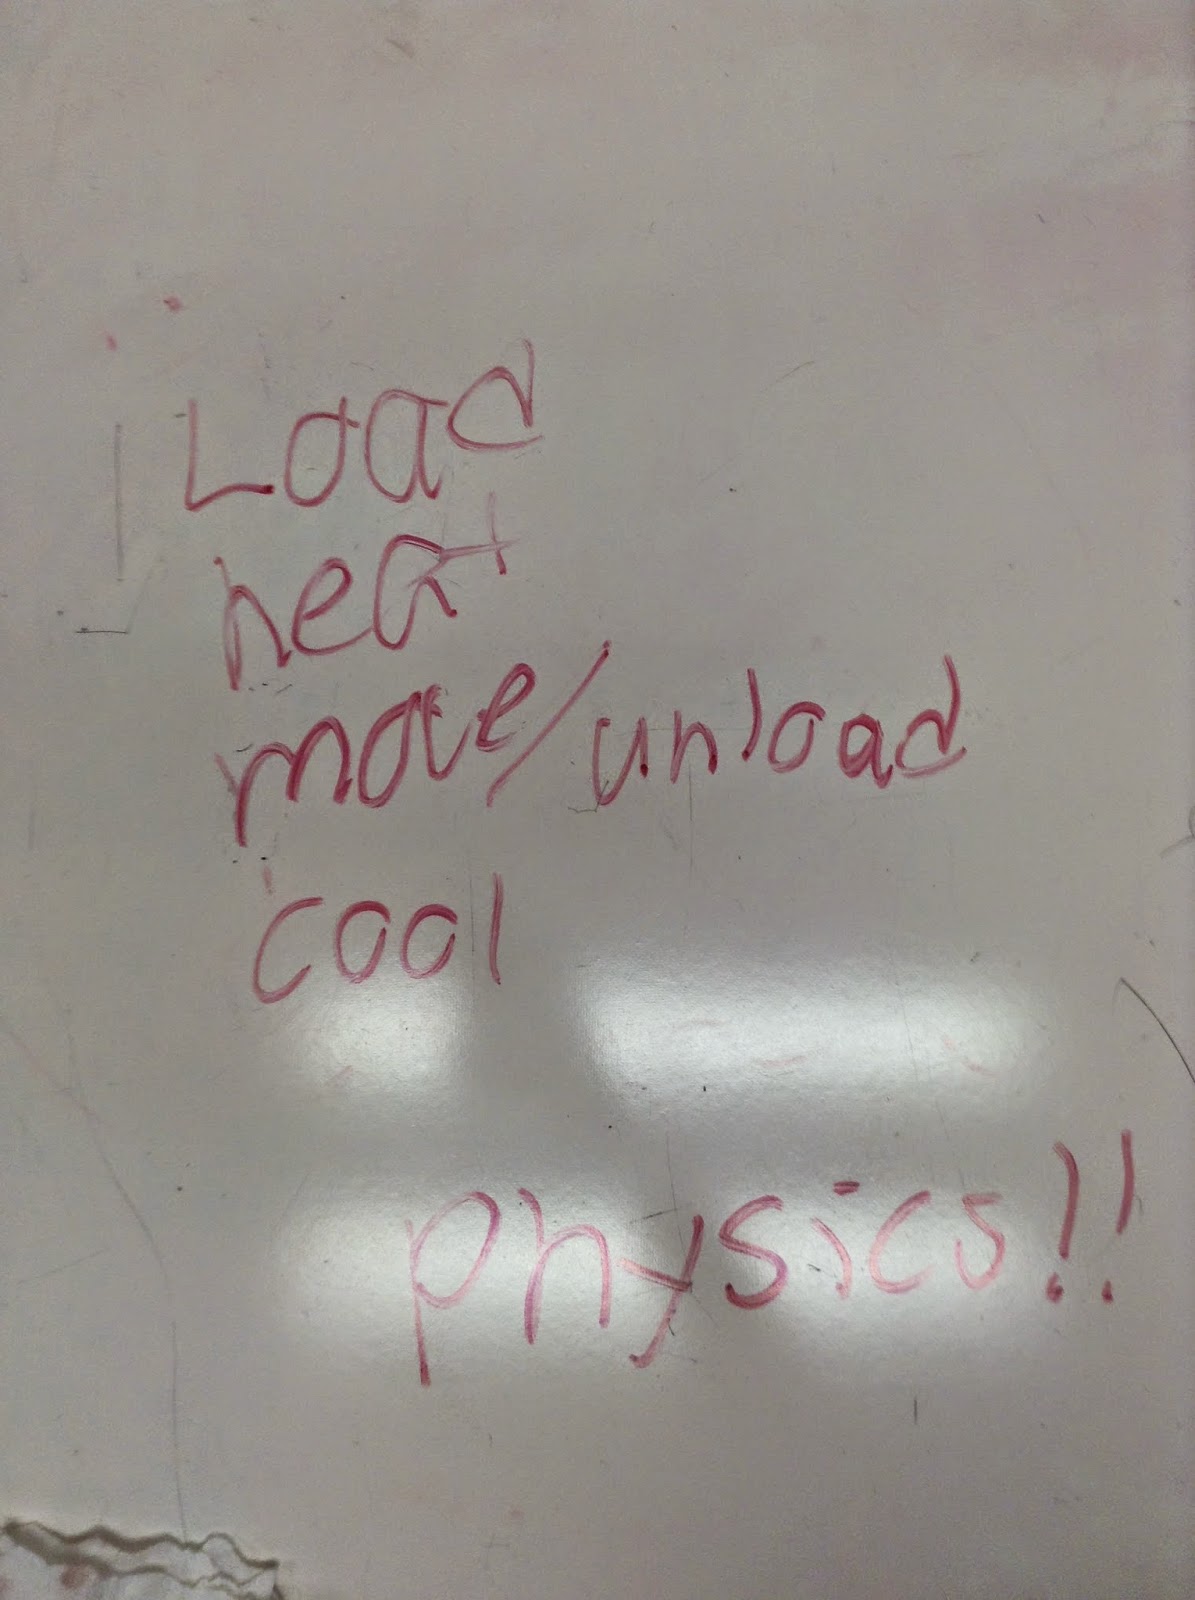 Load
heat
move/unload
cool
physics!!